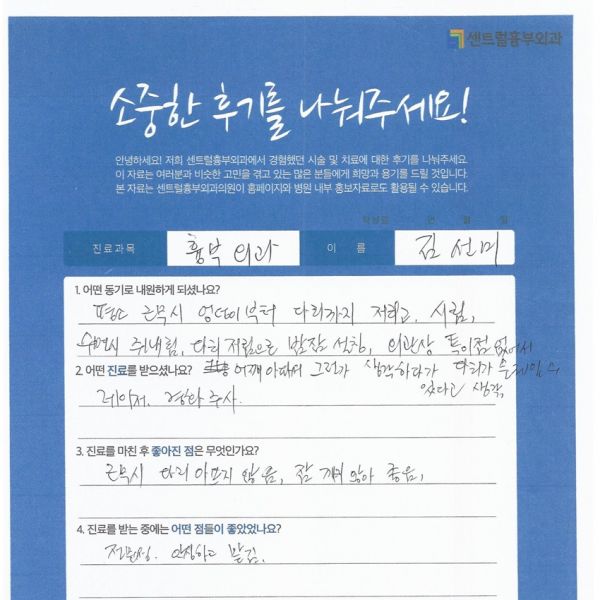 센트럴흉부외과
소중한 후기를 나눠주세요!
안녕하세요! 저희 센트럴흉부외과에서 경험했던 시술 및 치료에 대한 후기를 나눠주세요
이 자료는 여러분과 비슷한 고민을 겪고 있는 많은 분들에게 희망과 용기를 드릴 것입니다.
본 자료는 센트럴흉부외과의원이 홈페이지와 병원 내부 홍보자료로도 활용될 수 있습니다.
작성일 년 월 일
진료과목 흉부외과 이 름 김선미
1. 어떤 동기로 내원하게 되셨나요?
평소 근무시 엉덩이부터 다리까지 저리고, 시림,
수면시 쥐내림, 다리 저림으로 밤잠 설침, 외관상 특이점 없어서
2. 어떤 진료를 받으셨나요? 어깨 아파서 그런가 생각하다가 다리가
있다고 생각
레이저, 경화주사.
3. 진료를 마친 후 좋아진 점은 무엇인가요?
근무시 다리 아프지 않음, 잠 깨지 않아 좋음,
4. 진료를 받는 중에는 어떤 점들이 좋았었나요?
전문성, 안심하고 맡김.